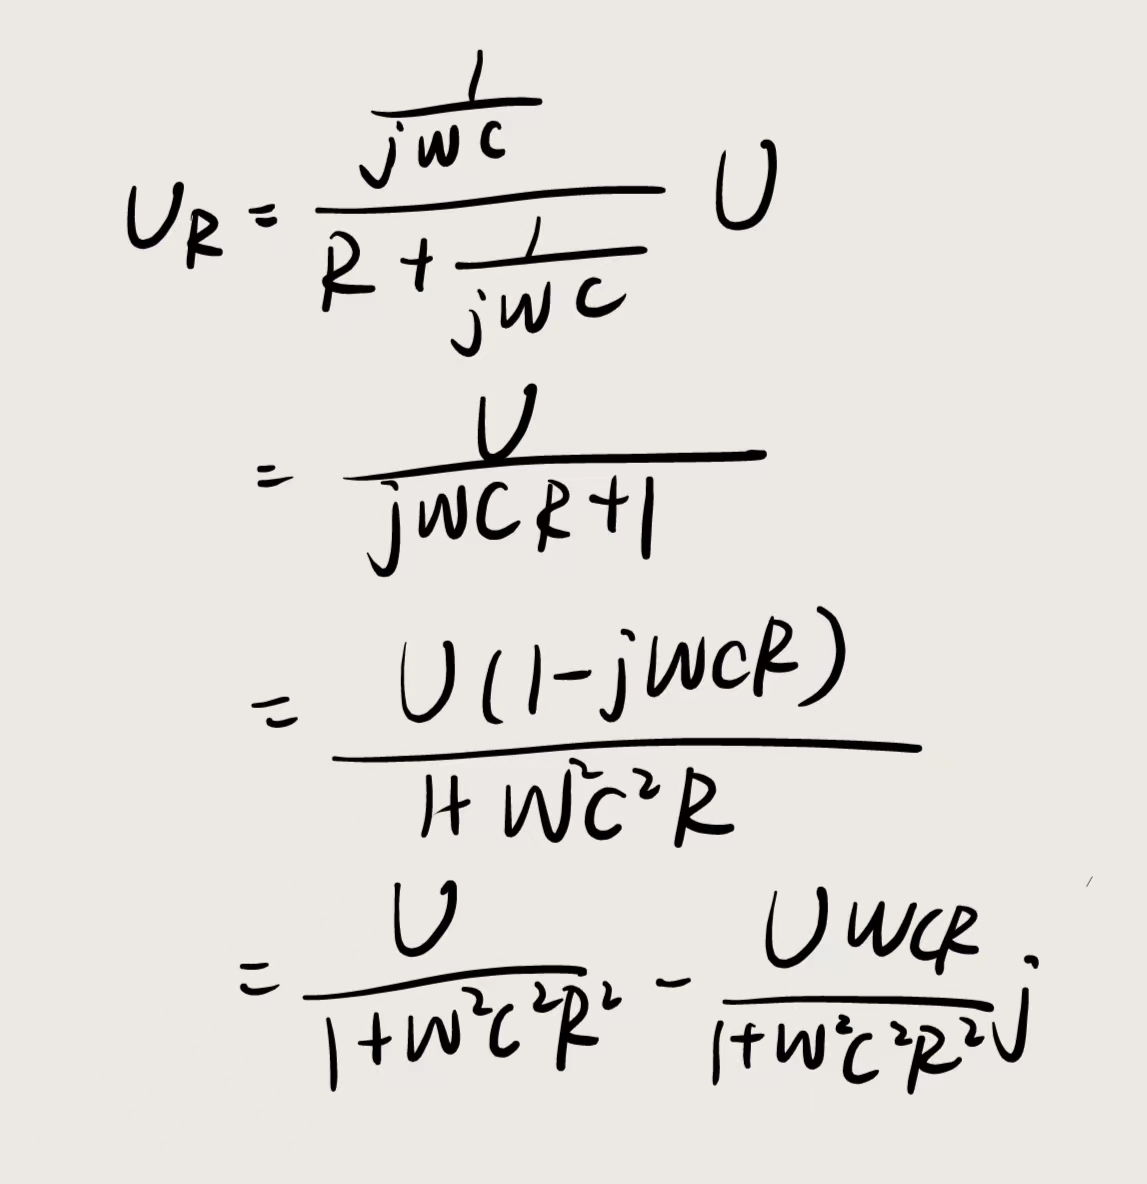 U_R = \frac{\frac{1}{jwc}}{R + \frac{1}{jwc}} U
= \frac{U}{jwcR+1}
= \frac{U(1-jwcR)}{1+w^2c^2R}
= \frac{U}{1+w^2c^2R^2} - \frac{UwcR}{1+w^2c^2R^2} j